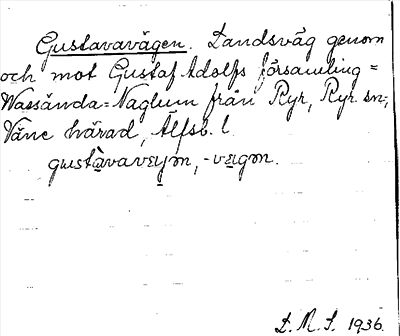 Gustavavägen. Landsväg genom
och mot Gustaf Adolfs församling =
Wassända=Naglum från Ryr, Ryr sn,
Väne härad, Älfsb. l.
gustàvaveɪ̯m, -veɪgm.
D. M. S. 1936.